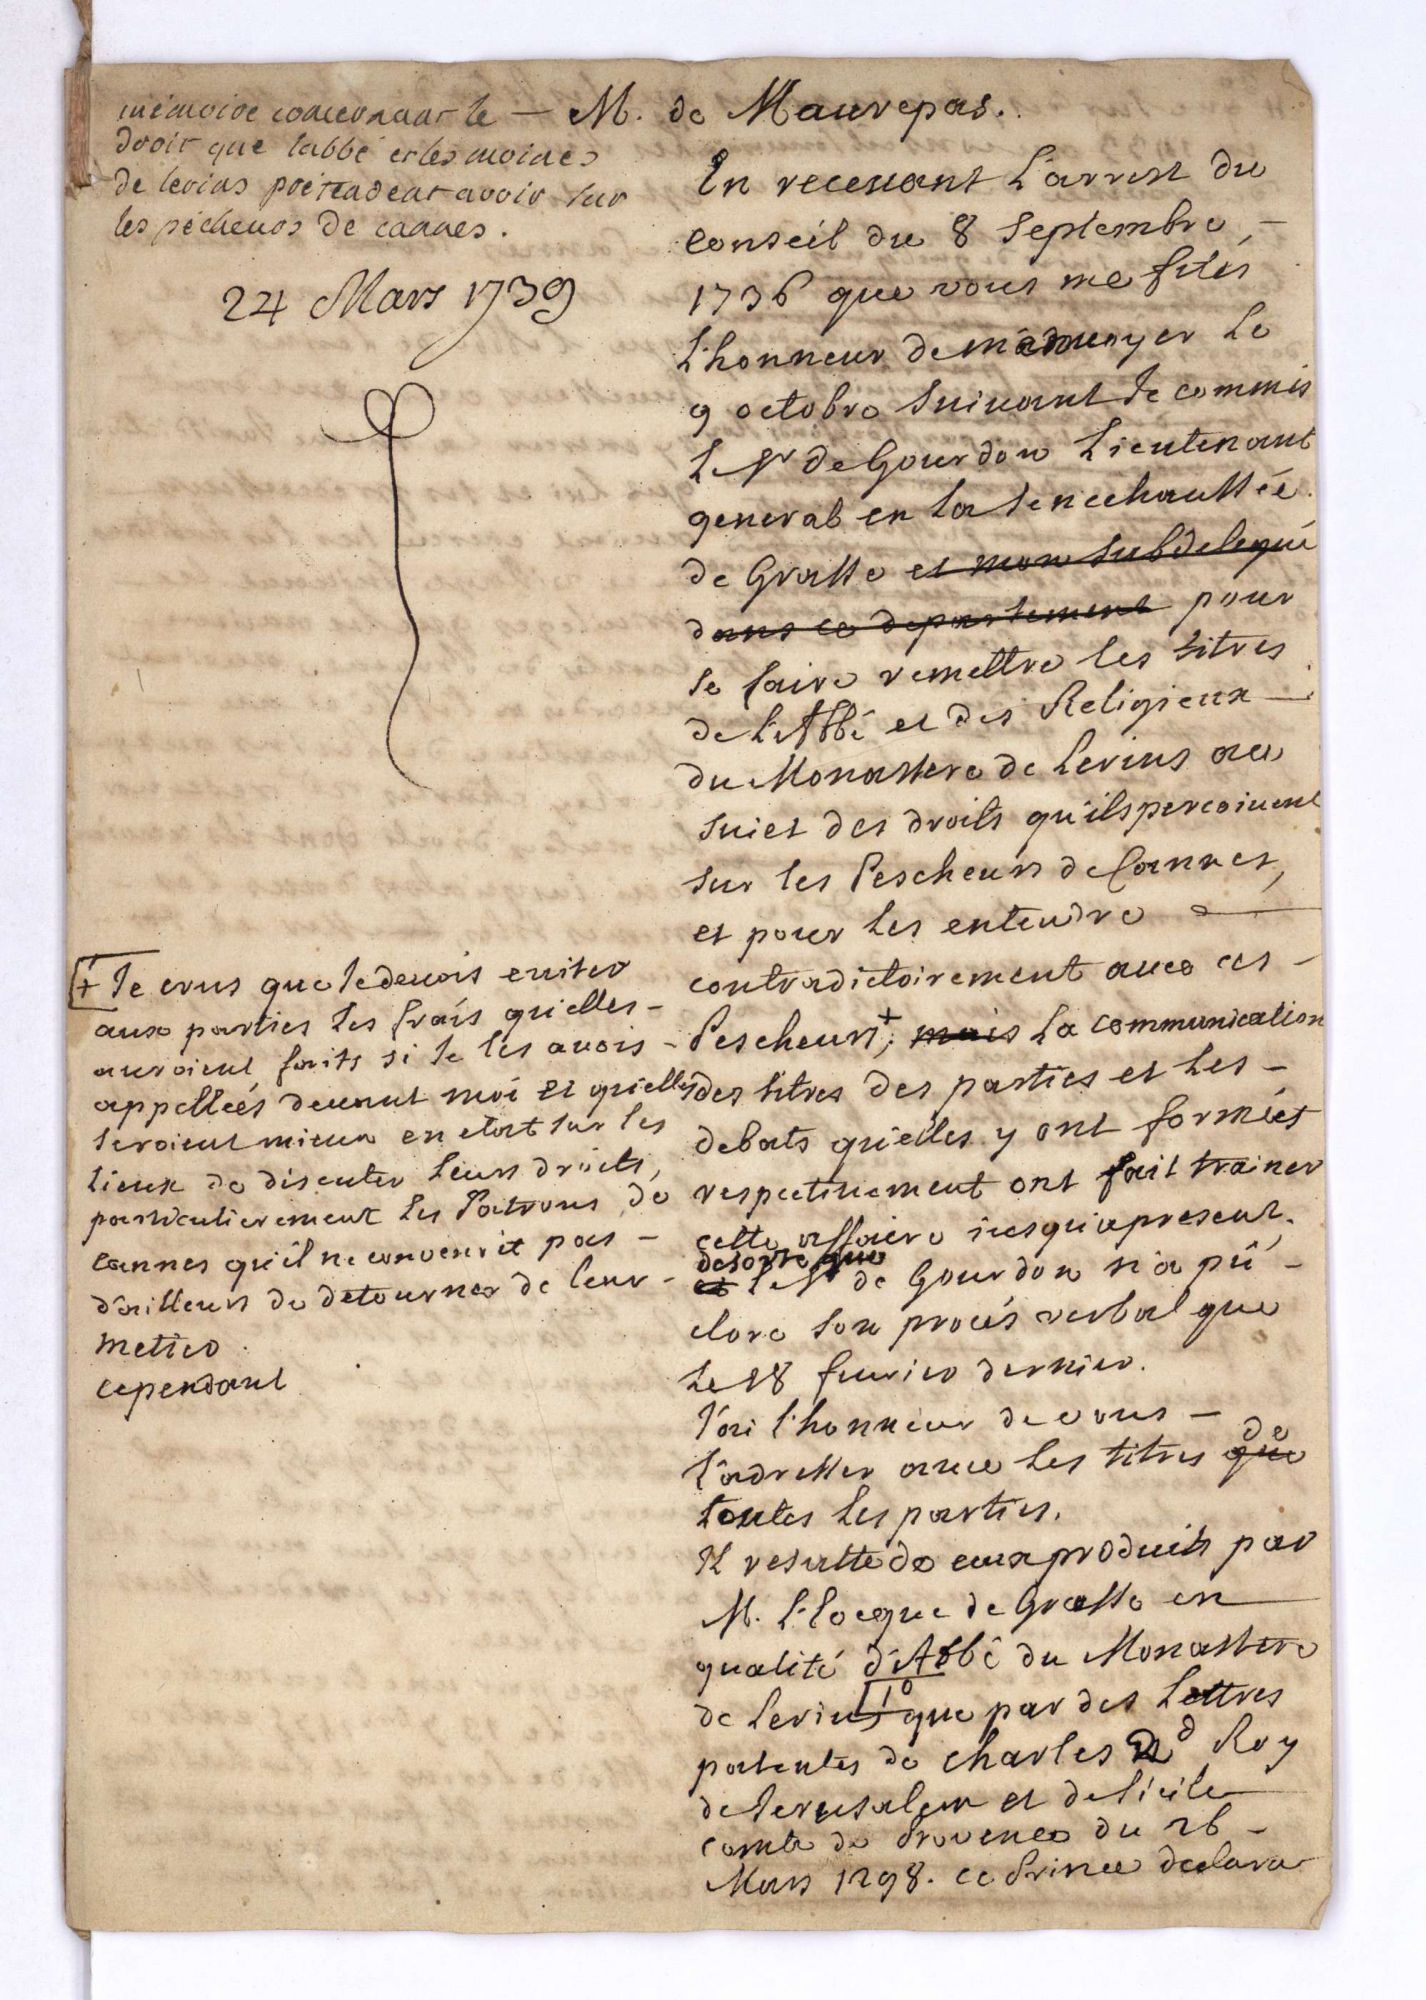 mémoire concernant le — M. de Maurepas.
droit que labbé et les moines
de lerins prétendent avoir sur
les pécheurs de cannes.
24 Mars 1739
En recevant L'arrest du
Conseil du 8 Septembre —
1736 que vous me fites
L'honneur de m'envoyer Le
9 octobre Suivant Je commis
Le Sr de Gourdon Lieutenant
general en La Senechaussée
de Grasse et mon Subdelegué
dans ce departement pour
se faire remettre les titres
de L'Abbé et des Religieux —
du Monastere de Lerins au
Suiet des droits qu'ils percoivent
Sur les Pescheurs de Cannes,
et pour Les entendre —
contradictoirement avec ces —
Pescheurs +, mais La communication
des titres des parties et Les —
debats qu'elles y ont formées
respectivement ont fait trainer
cette affaire iusqu'apresent,
desorte que
et le Sr de Gourdon n'a pû —
clore son procés verbal que
Le 18 fevrier dernier.
J'ai l'honneur de vous —
L'adresser avec Les titres que de
toutes Les parties.
Il resulte de ceux produits par
M. L'Eveque de Grasse en
qualité d'Abbé du Monastere
de Lerins, 1o que par des Lettres
patentes de Charles 2d Roy
de Jerusalem et de Sicile
comte de Provence du 26 —
Mars 1298. ce Prince declara
+ Je crus que Je devois eviter
aux parties Les frais qu'elles —
auroient faits si Je les avois —
appellées devant moi et qu'elles
Seroient mieux en etat sur les
Lieux de discuter Leurs droits,
particulierement Les Patrons de
Cannes qu'il ne convenoit pas —
d'ailleurs de detourner de leur —
metier.
cependant